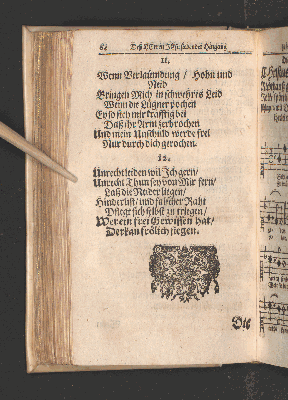 64 Deß HErrn JEsu
11.
Wenn Verläumdung / Hohn und
Neid
Bringen Mich in schweres Leid
Wenn die Lügner pochen
Daß ihr Arm zerbrochen
Und mein Unschuld werde frei
Nur durch dich gerochen.
12.
Unrecht leiden wil Ich gern /
Unrecht Thun sey von Mir fern /
Laß die Neider liegen /
Hinderlist / und falscher Raht
Pflegt sich selbst zu triegen /
Wer ein frei Gewissen hat /
Der kan frölich siegen.